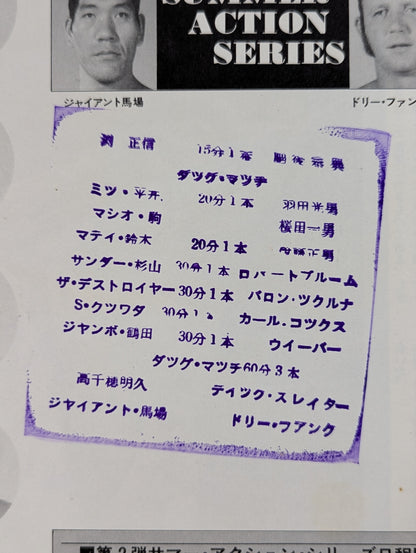 SUMMER
ACTION
SERIES
ジャイアント馬場
ドリー・ファン
渕 正信 15分1本
ダツグ・マツチ
ミツ・平井 20分1本 羽田光男
マシオ・駒 桜田一男
マティ・鈴木 20分1本 正男
サンダー・杉山 30分1本 ロバートブルーム
ザ・デストロイヤー 30分1本 バロン・ツクルナ
S・クツワダ 30分1本 カール・コツクス
ジャンボ・鶴田 30分1本 ウイーバー
ダツグ・マツチ60分3本
高千穂明久 ディツク・スレイター
ジャイアント・馬場 ドリー・フアンク